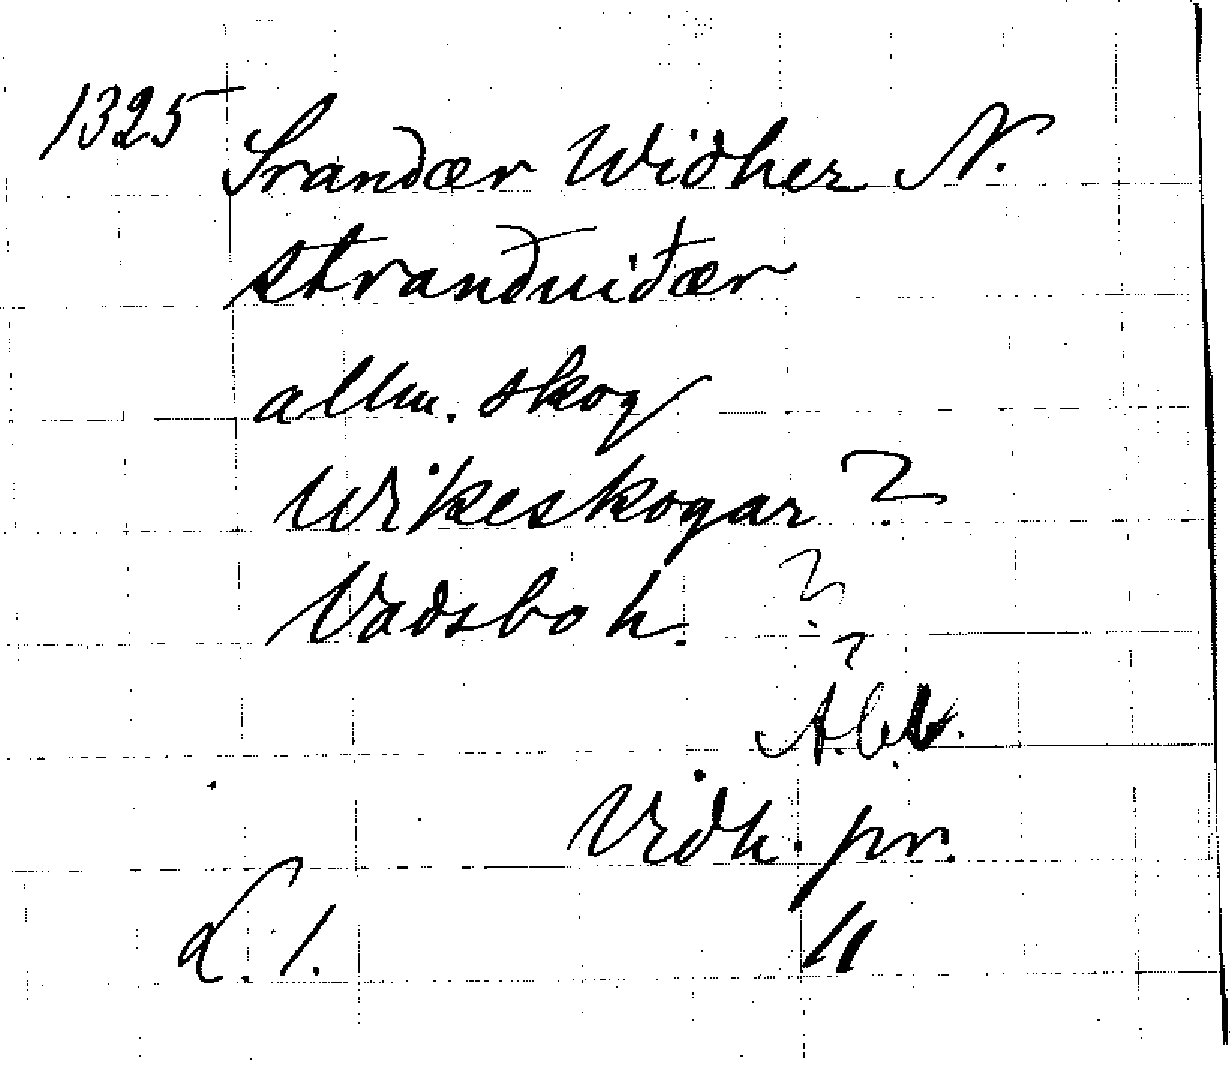 1325 Srandær Widher N.
strandvidær
allm. skog
Wikeskogar ?
Vadsbo h. ?
?
Vidh. pr.
d. 1. 11